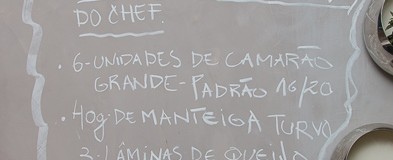 DO CHEF.
• 6-UNIDADES DE CAMARÃO
GRANDE-PADRÃO 16/20
• 40g-DE MANTEIGA TURVA
3-LÂMINAS DE QUEIJO